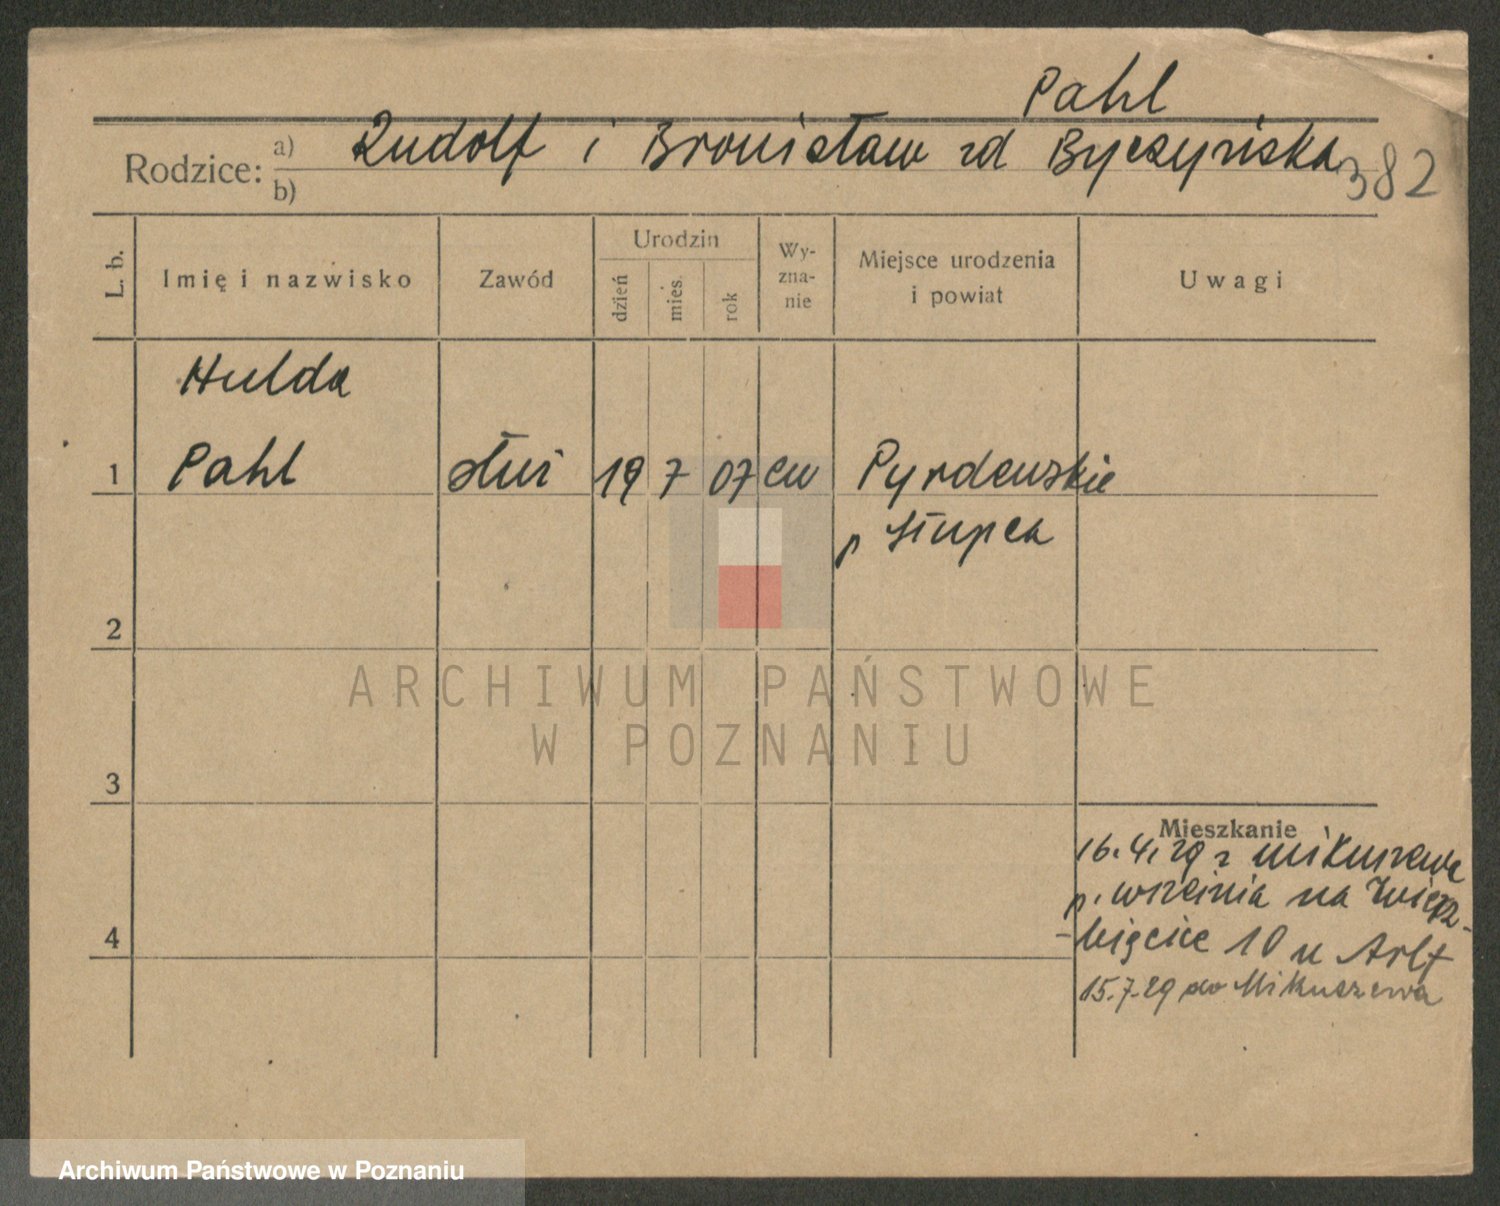 Pahl
Rodzice: a) Rudolf i Bronisław zd Byczyńska 382
b)
L. b. Imię i nazwisko Zawód Urodzin dzień mies. rok Wy-zna-nie Miejsce urodzenia i powiat Uwagi
Hulda
1 Pahl służ 19 7 07 ew Pyrdewskie
p Słupca
2
ARCHIWUM PAŃSTWOWE
W POZNANIU
3
Mieszkanie
16.4.29 z Mikuszewa
p. września na Wierz-
4 -bięcice 10 u Arlt
15.7.29 do Mikuszewa
Archiwum Państwowe w Poznaniu